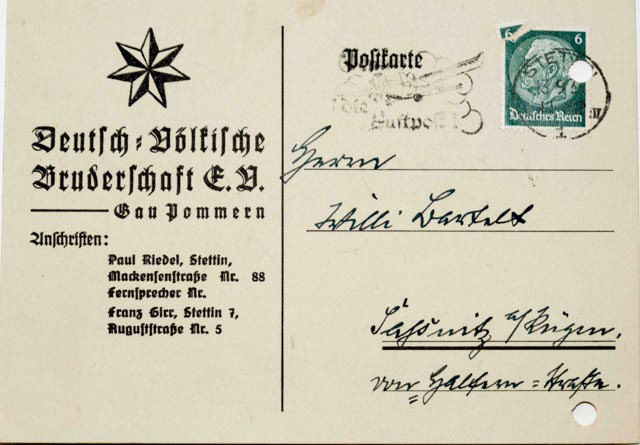 Postkarte
Deutsch-Völkische
Bruderschaft E.V.
Gau Pommern
Anschriften:
Paul Riedel, Stettin,
Mackensenstraße Nr. 88
Fernsprecher Nr.
Franz Girr, Stettin 7,
Auguststraße Nr. 5
die
Luftpost!
6 6
Deutsches Reich
STETTIN
1
Herrn
Willi Bartelt
Saßnitz a/Rügen.
von Halfern=Straße.